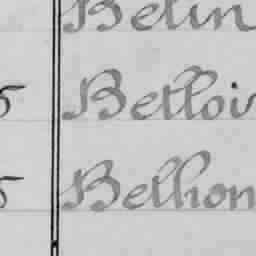 Belin
5 Belloir
5 Belhon